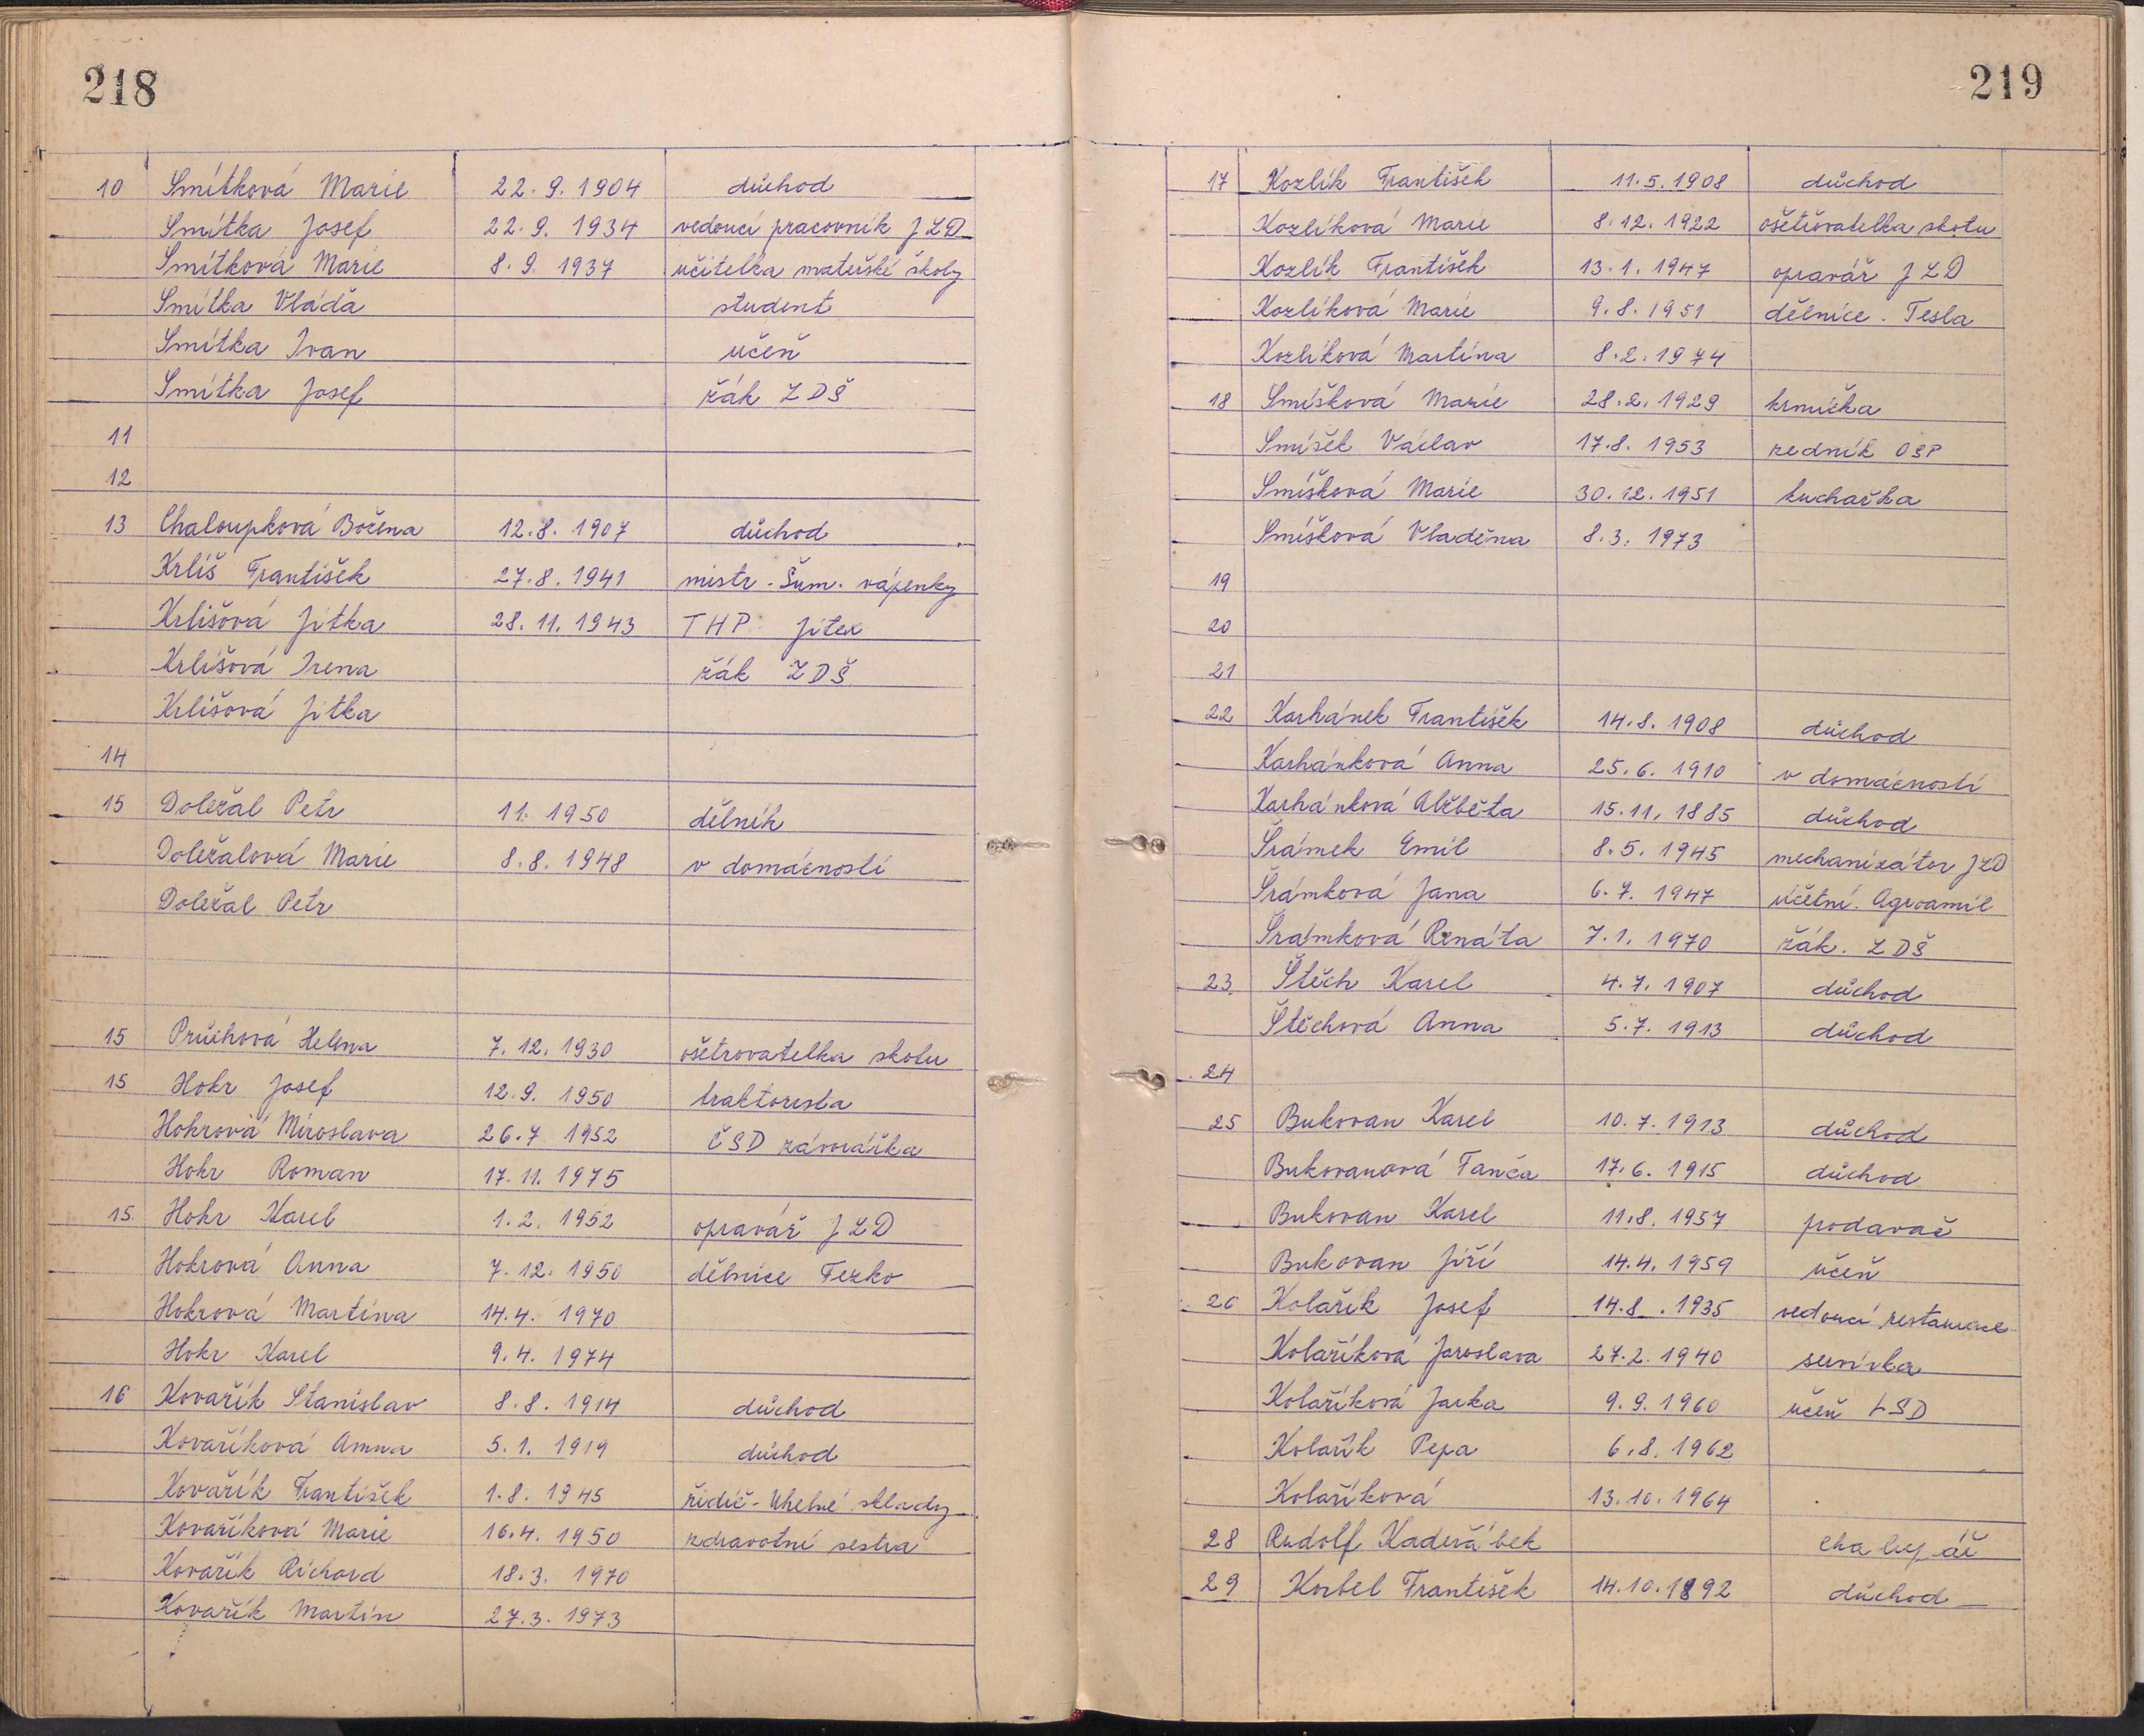 218
10 Smítková Marie 22.9.1904 důchod
Smítka Josef 22.9.1934 vedoucí pracovník JZD
Smítková Marie 8.9.1937 učitelka mateřské školy
Smítka Vláďa student
Smítka Ivan učeň
Smítka Josef žák ZDŠ
11
12
13 Chaloupková Božena 12.8.1907 důchod
Krliš František 27.8.1941 mistr - Šum. vápenky
Krlišová Jitka 28.11.1943 THP Jitex
Krlišová Irena žák ZDŠ
Krlišová Jitka
14
15 Doležal Petr 11. 1950 dělník
Doležalová Marie 8.8.1948 v domácnosti
Doležal Petr
15 Průchová Helena 7.12.1930 ošetrovatelka skotu
15 Hokr Josef 12.9.1950 traktorista
Hokrová Miroslava 26.7 1952 ČSD závorářka
Hokr Roman 17.11.1975
15 Hokr Karel 1.2.1952 opravář JZD
Hokrová Anna 7.12.1950 dělnice Fezko
Hokrová Martina 14.4.1970
Hokr Karel 9.4.1974
16 Kovařík Stanislav 8.8.1914 důchod
Kovaříková Anna 5.1.1919 důchod
Kovařík František 1.8.1945 řidič - Uhelné sklady
Kovaříková Marie 16.4.1950 zdravotní sestra
Kovařík Richard 18.3.1970
Kovařík Martin 27.3.1973
219
17 Kozlík František 11.5.1908 důchod
Kozlíková Marie 8.12.1922 ošetřovatelka skotu
Kozlík František 13.1.1947 opravář JZD
Kozlíková Marie 9.8.1951 dělnice. Tesla
Kozlíková Martina 8.2.1974
18 Smíšková Marie 28.2.1929 krmička
Smíšek Václav 17.8.1953 zedník OSP
Smíšková Marie 30.12.1951 kuchařka
Smíšková Vladěna 8.3.1973
19
20
21
22 Karhánek František 14.8.1908 důchod
Karhánková Anna 25.6.1910 v domácnosti
Karhánková Alžběta 15.11.1885 důchod
Šrámek Emil 8.5.1945 mechanizátor JZD
Šrámková Jana 6.7.1947 účetní. Agroamil
Šrámková Renáta 7.1.1970 žák. ZDŠ
23 Štěch Karel 4.7.1907 důchod
Štěchová Anna 5.7.1913 důchod
24
25 Bukovan Karel 10.7.1913 důchod
Bukovanová Tanča 17.6.1915 důchod
Bukovan Karel 11.8.1957 prodavač
Bukovan Jiří 14.4.1959 učeň
26 Kolařík Josef 14.8.1935 vedoucí restaurace
Kolaříková Jaroslava 27.2.1940 servírka
Kolaříková Jarka 9.9.1960 učeň LSD
Kolařík Pepa 6.8.1962
Kolaříková 13.10.1964
28 Rudolf Kadeřábek chalupář
29 Korbel František 14.10.1892 důchod